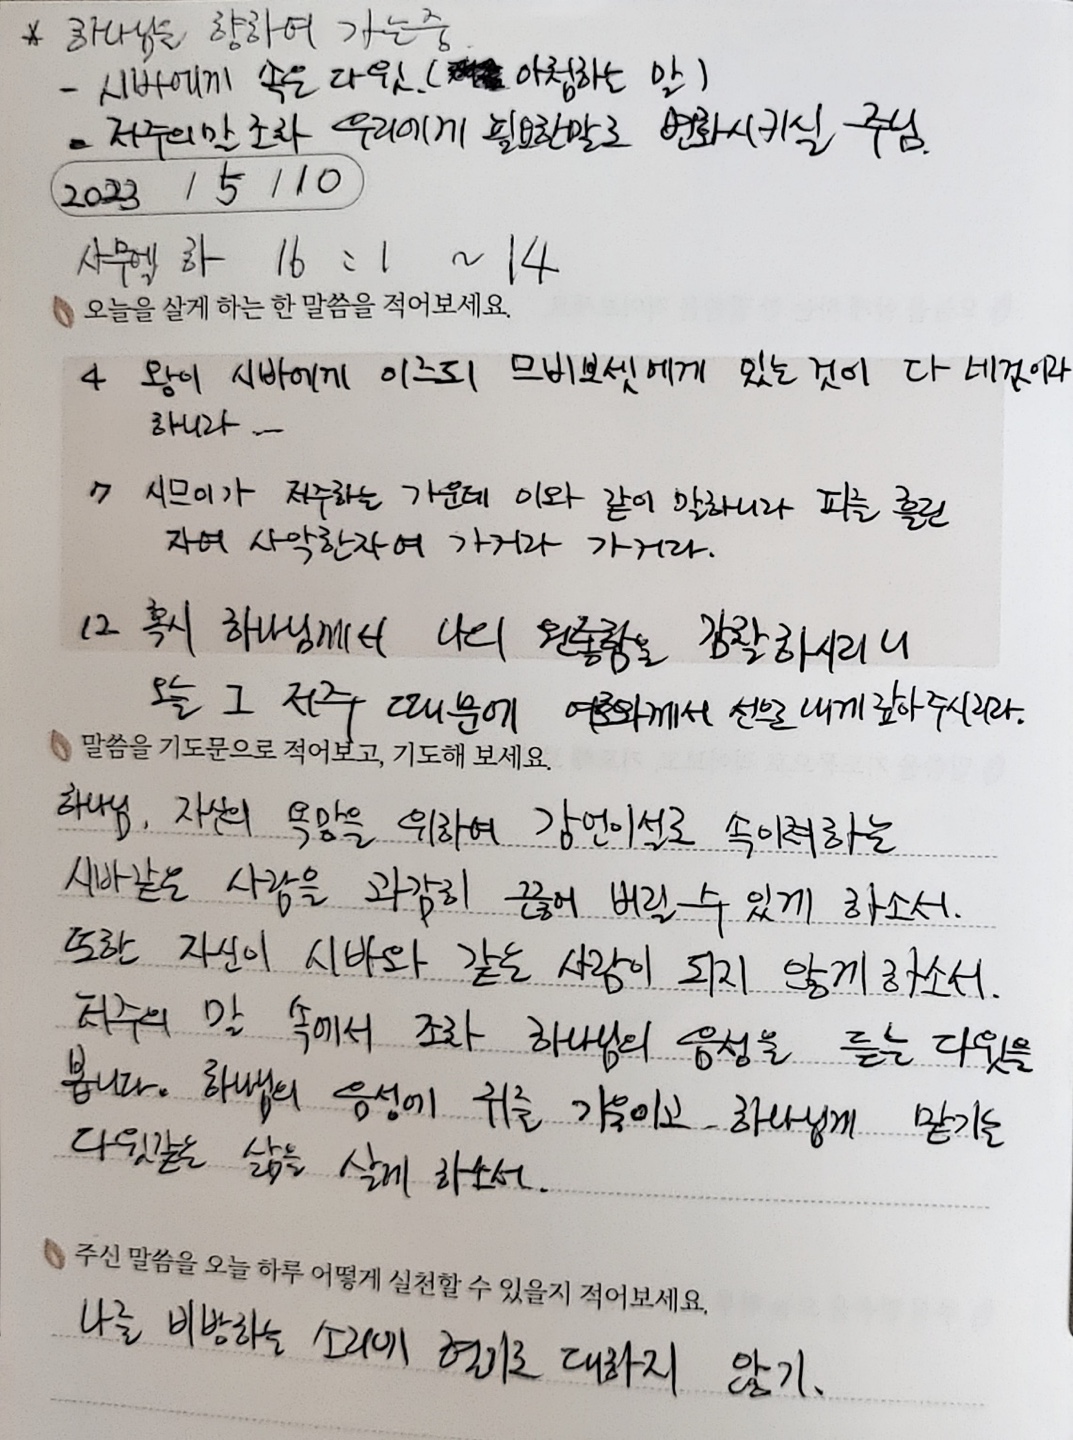 * 하나님을 향하여 가는중.
- 시바에게 속은 다윗. ( 아첨하는 말)
- 저주의말 조차 우리에게 필요한말로 변화시키실 주님.
2023 / 5 / 10
사무엘 하 16 : 1 ~ 14
오늘을 살게 하는 한 말씀을 적어보세요.
4 왕이 시바에게 이르되 므비보셋에게 있는 것이 다 네것이라
하니라 -
7 시므이가 저주하는 가운데 이와 같이 말하니라 피를 흘린
자여 사악한자여 가거라 가거라.
12 혹시 하나님께서 나의 원통함을 감찰하시리니
오늘 그 저주 때문에 여호와께서 선으로 내게 갚아주시리라.
말씀을 기도문으로 적어보고, 기도해 보세요.
하나님, 자신의 욕망을 위하여 감언이설로 속이려하는
시바같은 사람을 과감히 끊어 버릴 수 있게 하소서.
또한 자신이 시바와 같은 사람이 되지 않게 하소서.
저주의 말 속에서 조차 하나님의 음성을 듣는 다윗을
봅니다. 하나님의 음성에 귀를 기울이고 하나님께 맡기는
다윗같은 삶을 살게 하소서.
주신 말씀을 오늘 하루 어떻게 실천할 수 있을지 적어보세요.
나를 비방하는 소리에 혈기로 대하지 않기.